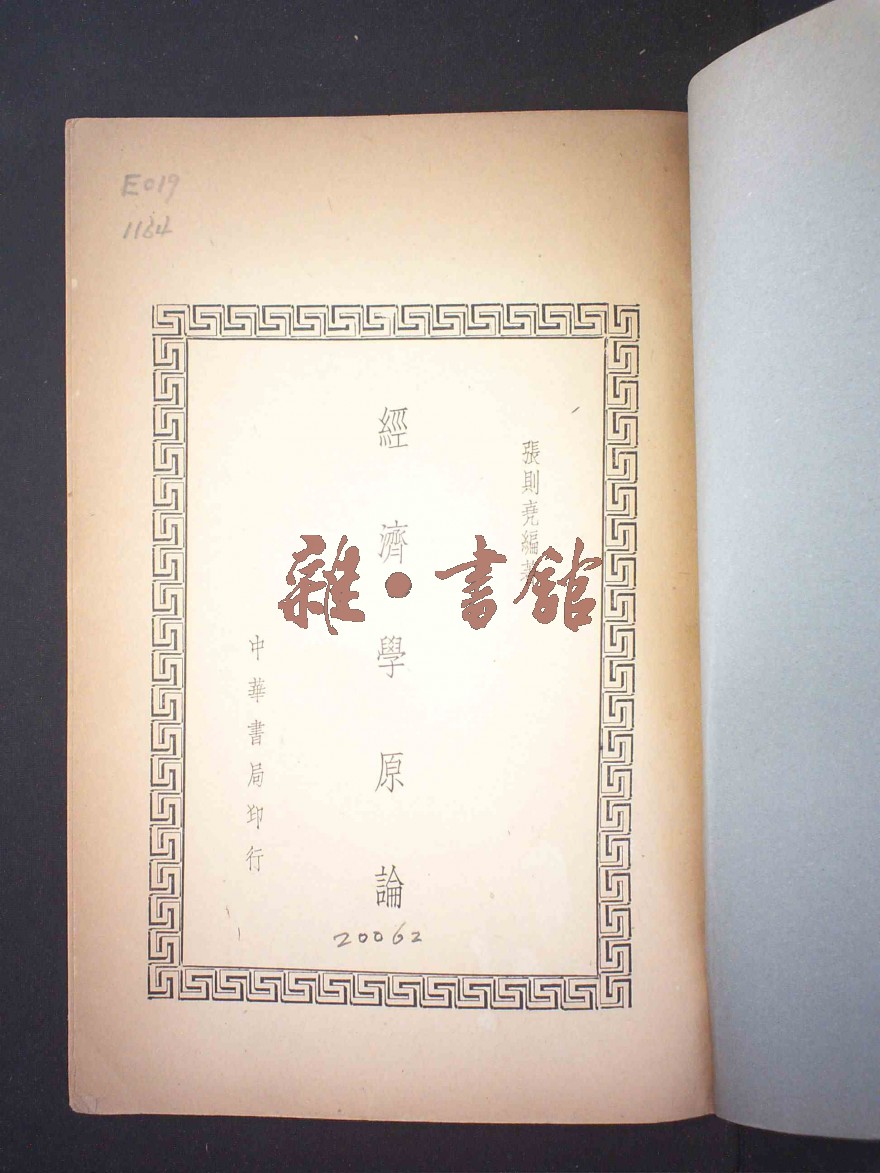 E019
1164
張則堯編著
經濟學原論
雜・書館
中華書局印行
20062